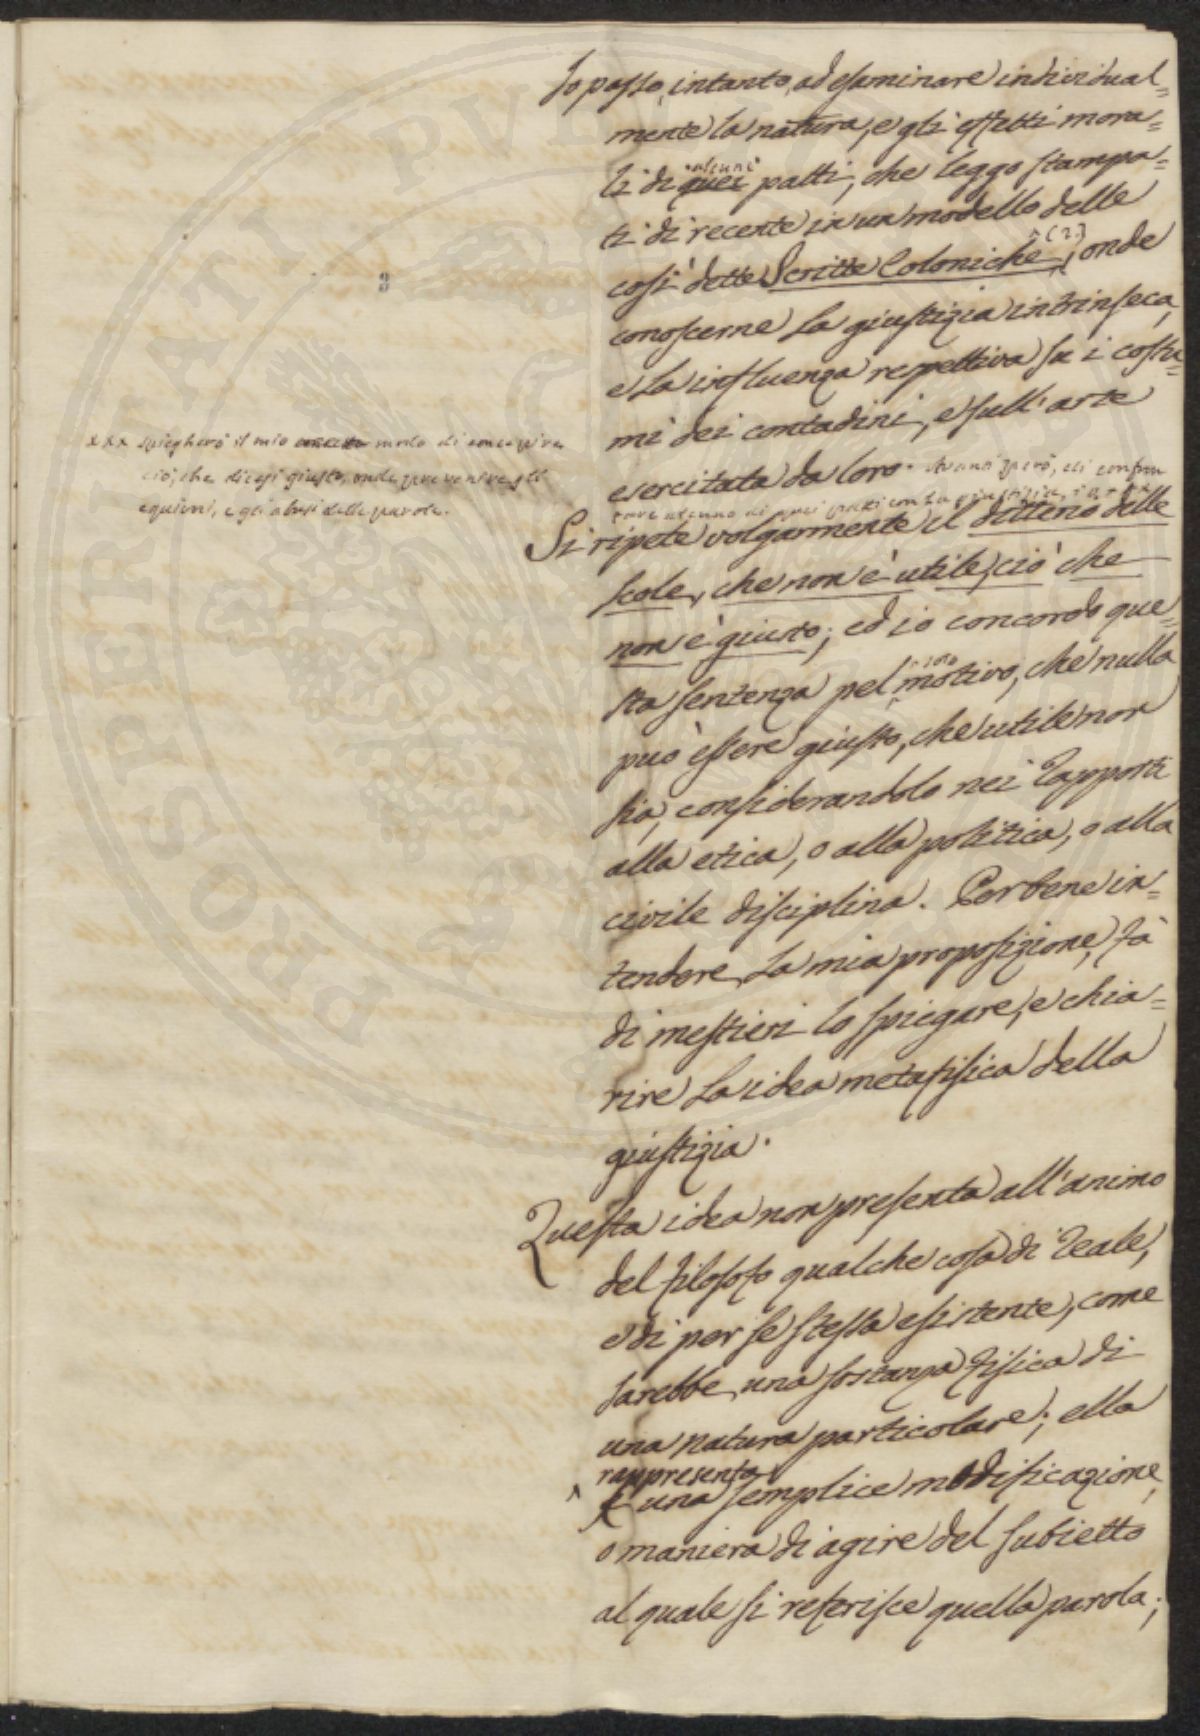 Io passo, intanto, ad esaminare individual=
mente la natura, e gli effetti mora=
li di quei alcuni patti, che leggo stampa=
ti di recente in un modello delle
così dette Scritte Coloniche (2), onde
conoscerne la giustizia intrinseca,
e la influenza respettiva su i costu=
mi dei contadini, e sull'arte
esercitata da loro. Avanti però, di confron
tare alcuno di quei patti con la giustizia, io xxx
xxx spiegherò il mio modo di concepire
ciò, che dicesi giusto, onde prevenire gli
equivoci, e gli abusi delle parole.
Si ripete volgarmente il ditterio delle
scole, che non è utile, ciò che
non è giusto; ed io concordo que=
sta sentenza pel solo motivo, che nulla
può essere giusto, che utile non
sia, considerandolo nei rapporti
alla etica, o alla politica, o alla
civile disciplina. Per bene in=
tendere la mia proposizione, fà
di mestieri lo spiegare, e chia=
rire la idea metafisica della
giustizia.
Questa idea non presenta all'animo
del filosofo qualche cosa di reale,
e di per se stessa esistente, come
sarebbe una sostanza fisica di
una natura particolare; ella
rappresenta
è una semplice modificazione,
o maniera di agire del subietto
al quale si referisce quella parola;
3
PROSPERITATI PVBLICAE